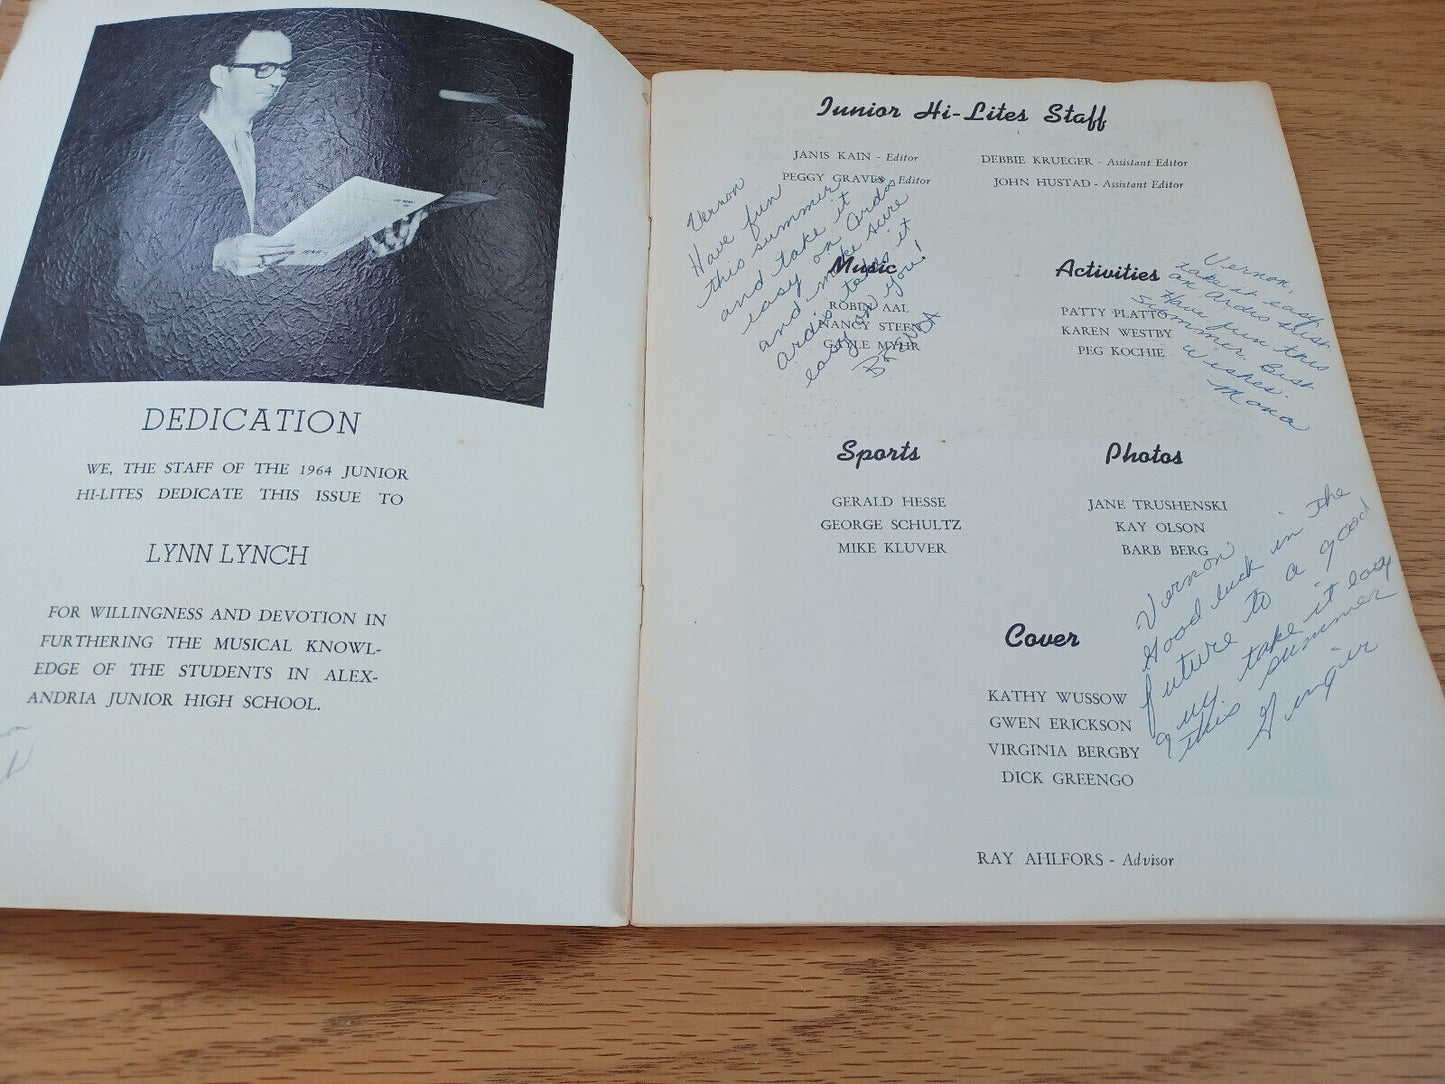 DEDICATION
WE, THE STAFF OF THE 1964 JUNIOR
HI-LITES DEDICATE THIS ISSUE TO
LYNN LYNCH
FOR WILLINGNESS AND DEVOTION IN
FURTHERING THE MUSICAL KNOWL-
EDGE OF THE STUDENTS IN ALEX-
ANDRIA JUNIOR HIGH SCHOOL.
Junior Hi-Lites Staff
JANIS KAIN - Editor
PEGGY GRAVES - Editor
DEBBIE KRUEGER - Assistant Editor
JOHN HUSTAD - Assistant Editor
Vernon
Have fun
this summer
and take it
easy on Ardos
and make sure
Ardis takes it
easy on you!
Music
ROBIN AAL
NANCY STEEN
GAYLE MYHR
Activities
PATTY PLATTO
KAREN WESTBY
PEG KOCHIE
Vernon,
take it easy
on Ardis
Have fun this
summer. Best
Wishes.
Mona
Sports
GERALD HESSE
GEORGE SCHULTZ
MIKE KLUVER
Photos
JANE TRUSHENSKI
KAY OLSON
BARB BERG
Vernon
Good luck in the
future to a good
guy take it easy
this summer
Cover
KATHY WUSSOW
GWEN ERICKSON
VIRGINIA BERGBY
DICK GREENGO
RAY AHLFORS - Advisor